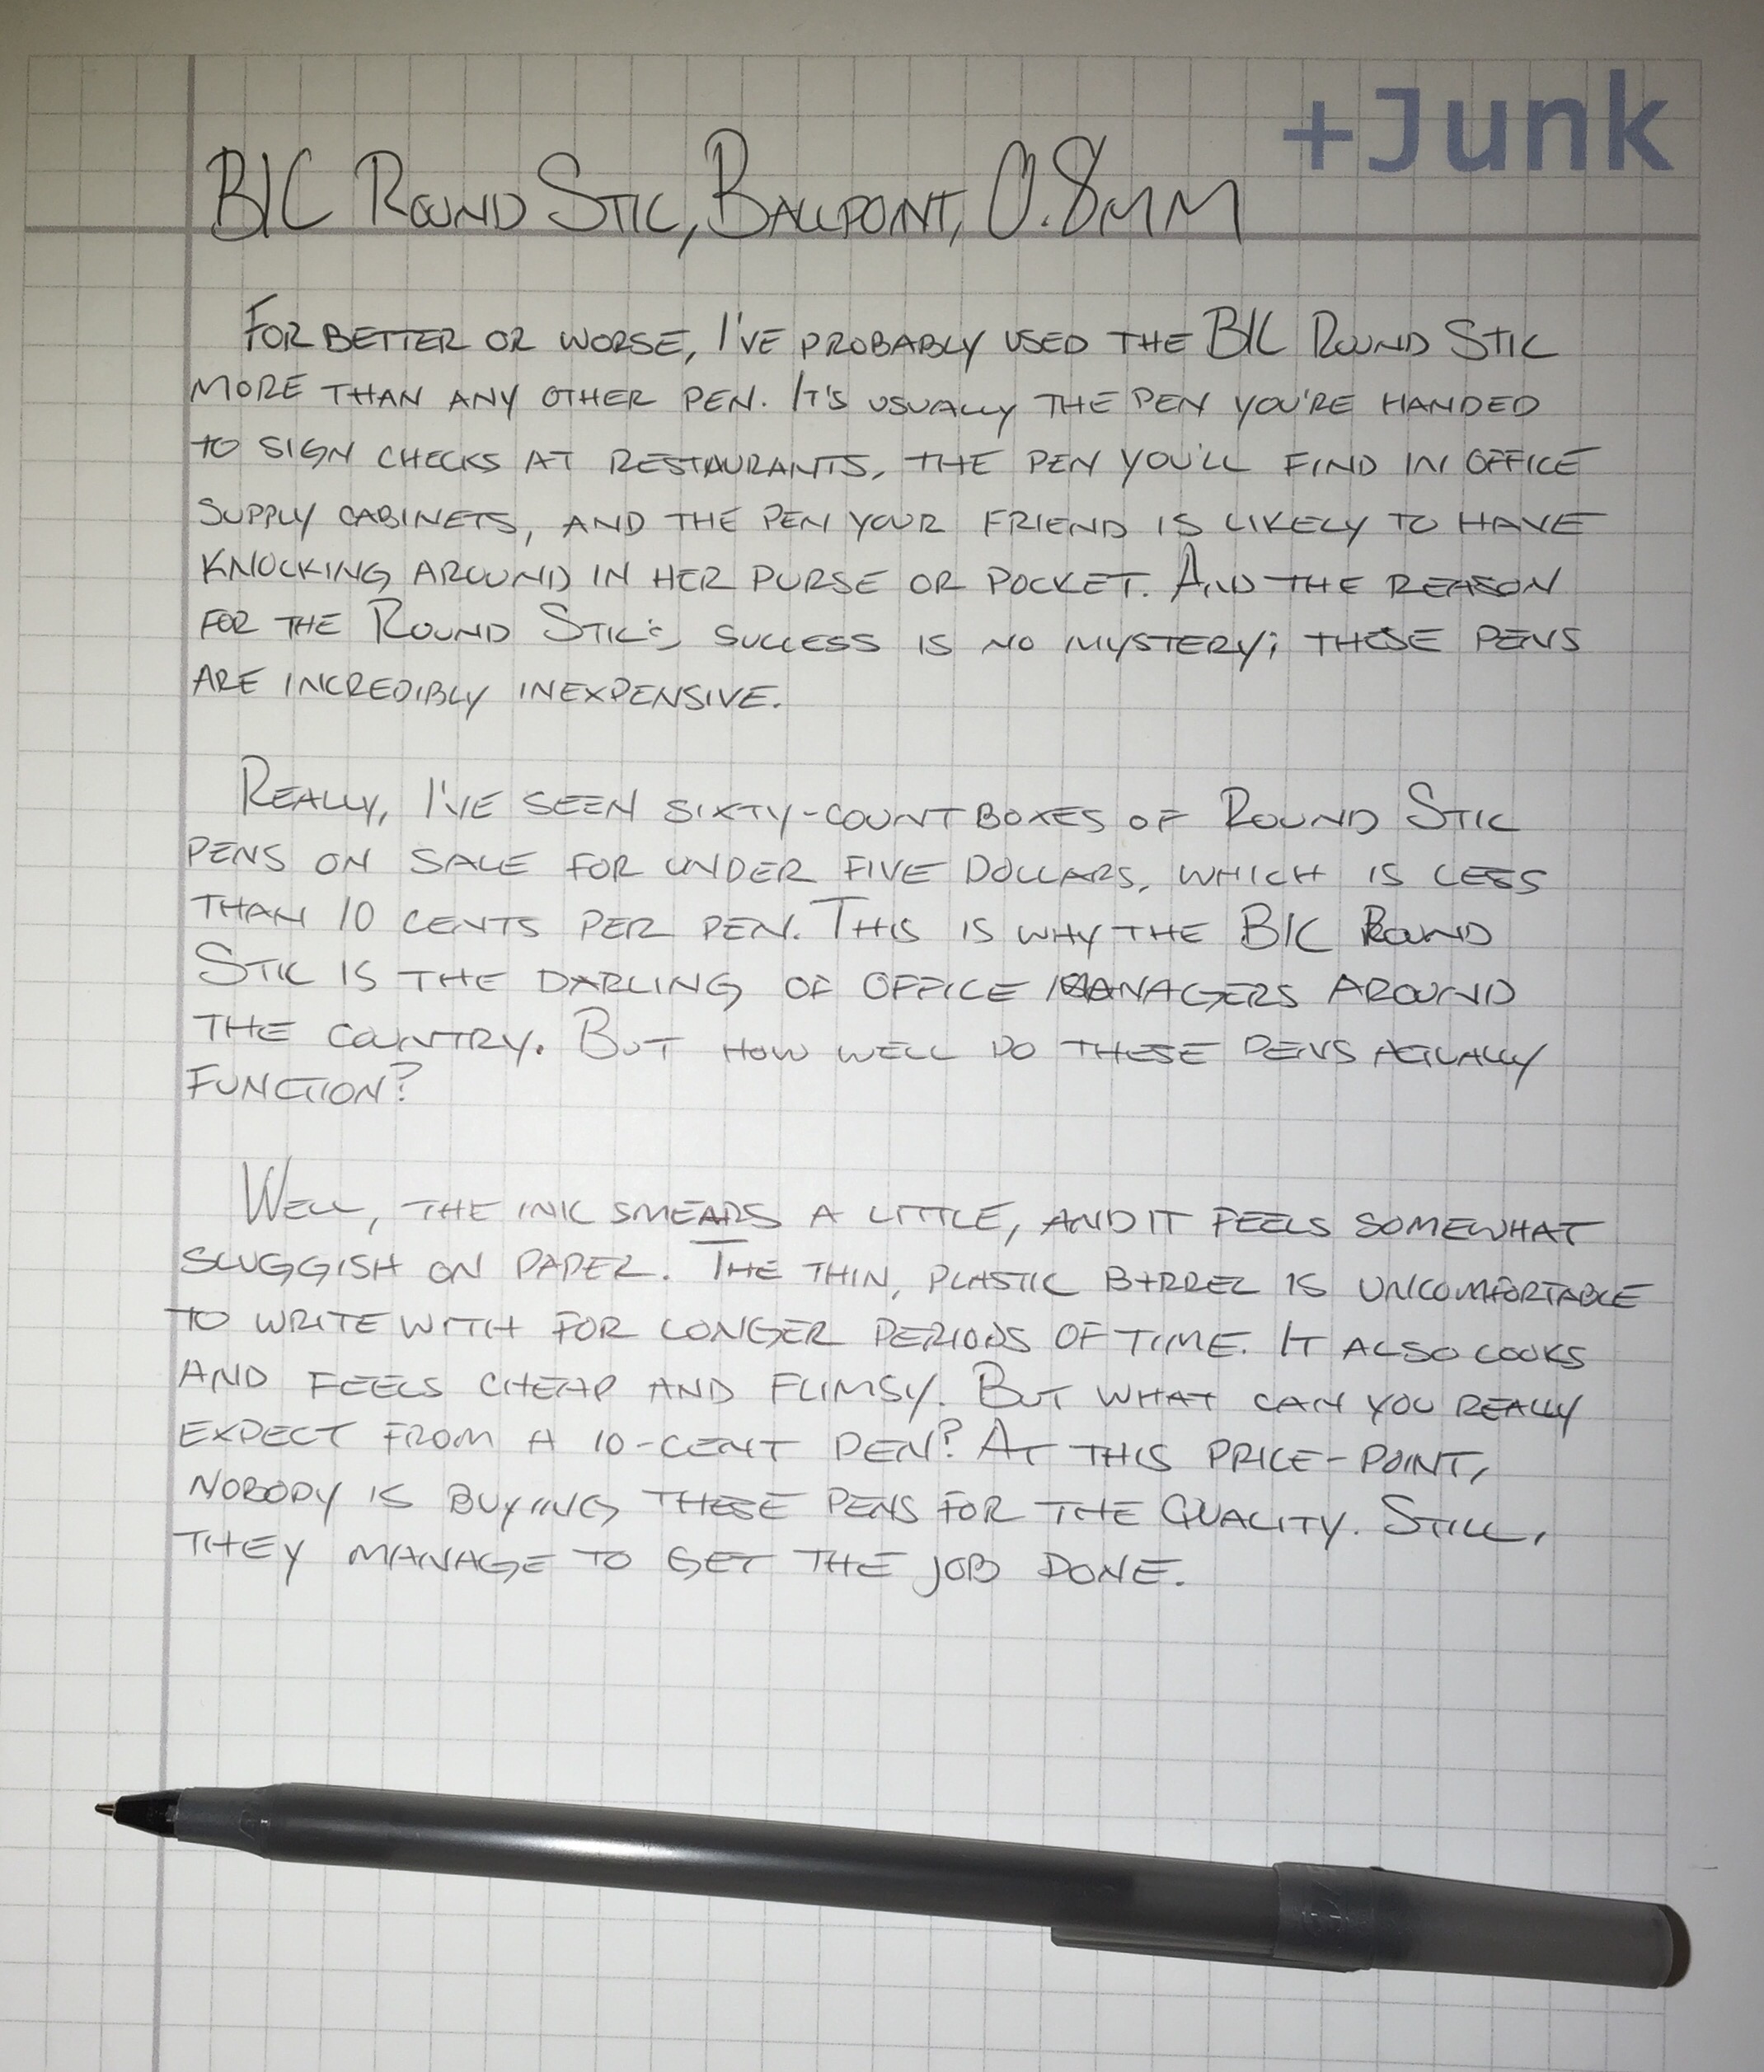 +Junk
BIC ROUND STIC, BALLPOINT, 0.8MM
FOR BETTER OR WORSE, I'VE PROBABLY USED THE BIC ROUND STIC
MORE THAN ANY OTHER PEN. IT'S USUALLY THE PEN YOU'RE HANDED
TO SIGN CHECKS AT RESTAURANTS, THE PEN YOU'LL FIND IN OFFICE
SUPPLY CABINETS, AND THE PEN YOUR FRIEND IS LIKELY TO HAVE
KNOCKING AROUND IN HER PURSE OR POCKET. AND THE REASON
FOR THE ROUND STIC'S SUCCESS IS NO MYSTERY; THESE PENS
ARE INCREDIBLY INEXPENSIVE.
REALLY, I'VE SEEN SIXTY-COUNT BOXES OF ROUND STIC
PENS ON SALE FOR UNDER FIVE DOLLARS, WHICH IS LESS
THAN 10 CENTS PER PEN. THIS IS WHY THE BIC ROUND
STIC IS THE DARLING OF OFFICE MANAGERS AROUND
THE COUNTRY. BUT HOW WELL DO THESE PENS ACTUALLY
FUNCTION?
WELL, THE INK SMEARS A LITTLE, AND IT FEELS SOMEWHAT
SLUGGISH ON PAPER. THE THIN, PLASTIC BARREL IS UNCOMFORTABLE
TO WRITE WITH FOR LONGER PERIODS OF TIME. IT ALSO LOOKS
AND FEELS CHEAP AND FLIMSY. BUT WHAT CAN YOU REALLY
EXPECT FROM A 10-CENT PEN? AT THIS PRICE-POINT,
NOBODY IS BUYING THESE PENS FOR THE QUALITY. STILL,
THEY MANAGE TO GET THE JOB DONE.